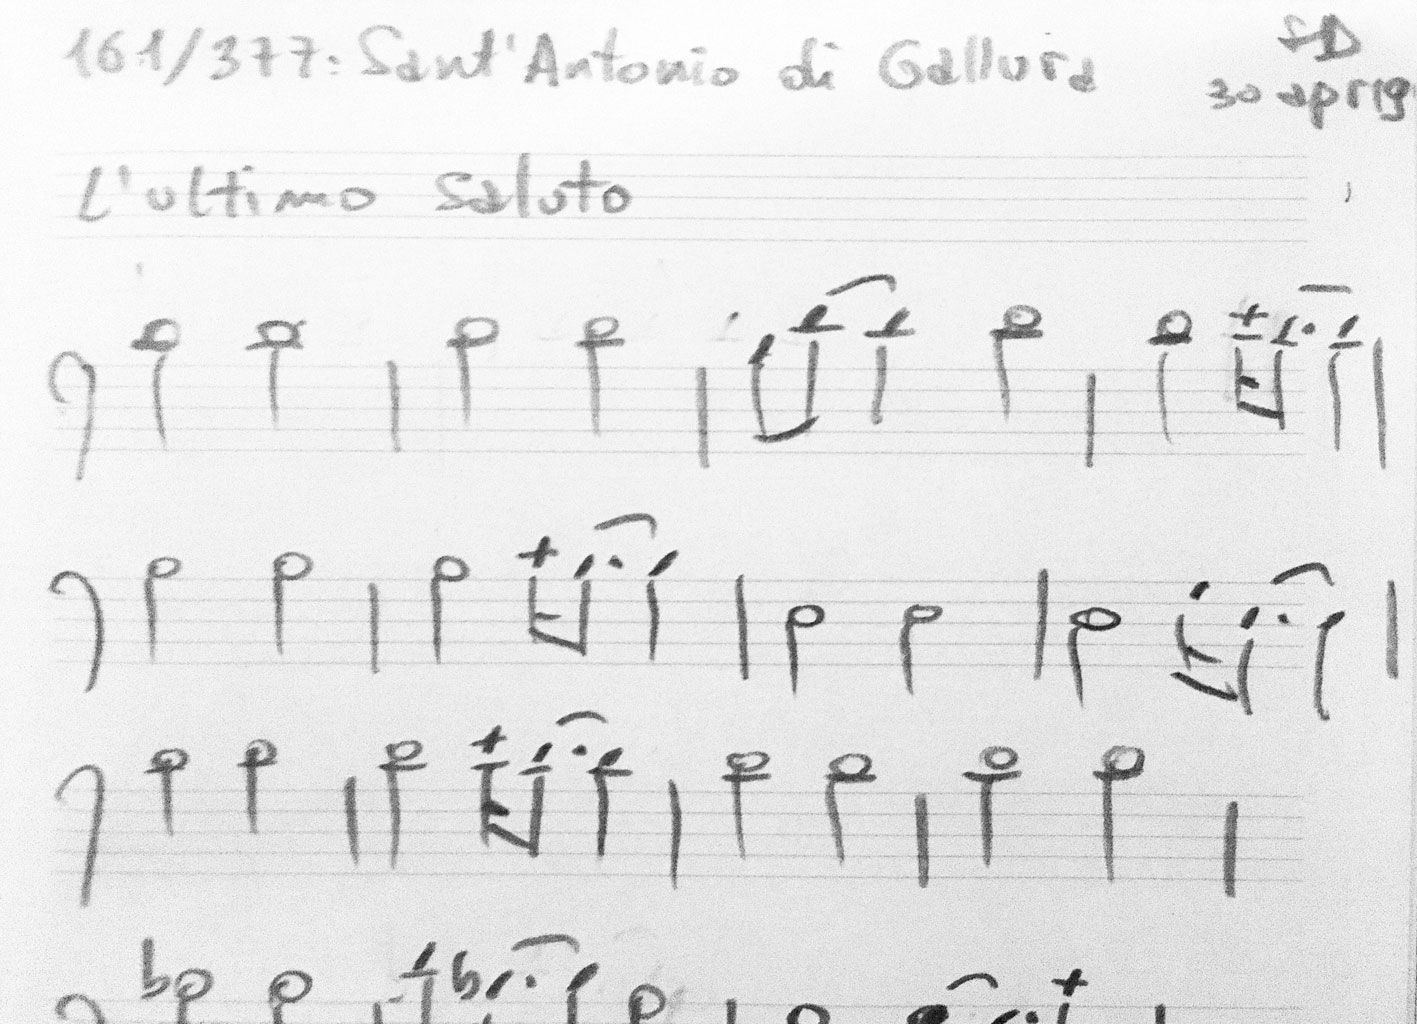 161/377: Sant'Antonio di Gallura
SD
30 apr 19
L'ultimo saluto